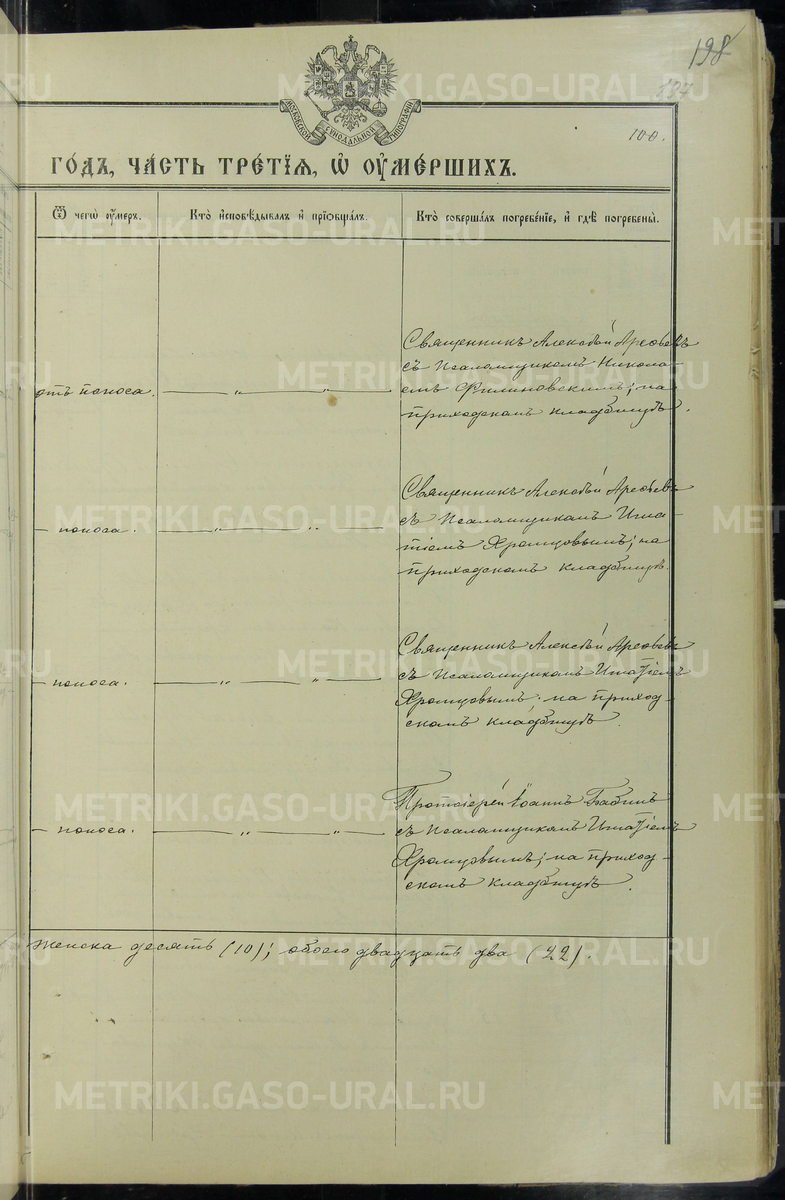 198
187
МОСКОВСКОЙ СѴНОДАЛЬНОЙ ТИПОГРАФІИ
100.
ГОДЪ, ЧАСТЬ ТРЕТІЯ, Ѽ ОУМЕРШИХЪ.
Ѿ чегѡ оумеръ.
Кто исповѣдывалъ и пріобщалъ.
Кто совершалъ погребеніе, и гдѣ погребены.
отъ поноса
— „ — „ —
Священникъ Алексѣй Арефьевъ
съ Псаломщикомъ Никола-
емъ Филиновскимъ; на
приходскомъ кладбищѣ.
— поноса.
— „ — „ —
Священникъ Алексѣй Арефьевъ
съ Псаломщикомъ Игна-
тіемъ Хромцовымъ; на
приходскомъ кладбищѣ.
— поноса.
— „ — „ —
Священникъ Алексѣй Арефьевъ
съ Псаломщикомъ Игнатіемъ
Хромцовымъ; на приход-
скомъ кладбищѣ.
— поноса.
— „ — „ —
Протоіерей Іоаннъ Бабинъ
съ Псаломщикомъ Игнатіемъ
Хромцовымъ; на приход-
скомъ кладбищѣ.
женска десять (10); обоего двадцать два (22).
METRIKI.GASO-URAL.RU